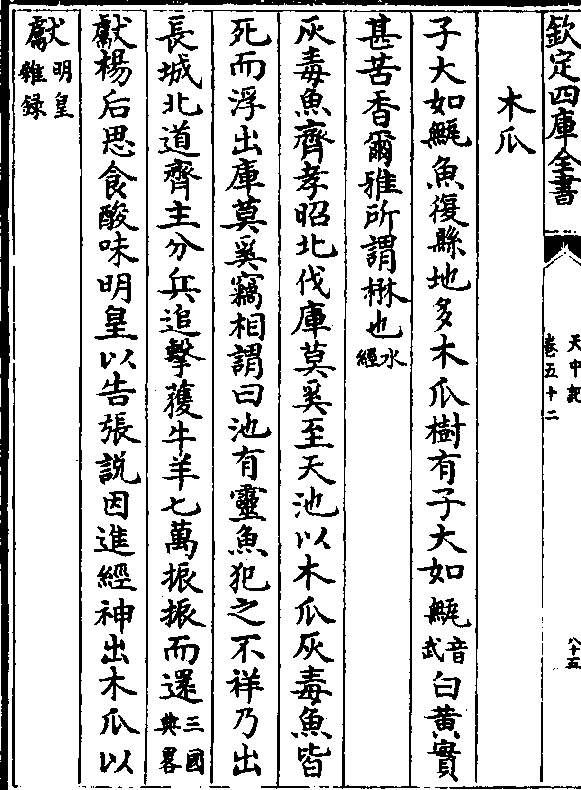 欽定四庫全書
天中記
卷五十二
八十五
木瓜
子大如甂魚復縣地多木瓜樹有子大如甂音武白黄實
甚苦香爾雅所謂楙也水經
灰毒魚齊孝昭北伐庫莫奚至天池以木瓜灰毒魚皆
死而浮出庫莫奚竊相謂曰池有靈魚犯之不祥乃出
長城北道齊主分兵追擊獲牛羊七萬振振而還三國典畧
獻楊后思食酸味明皇以告張説因進經神出木瓜以
獻明皇雜録